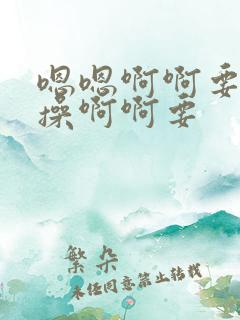 嗯嗯啊啊要
操啊啊要
繁朵
未经同意禁止转载